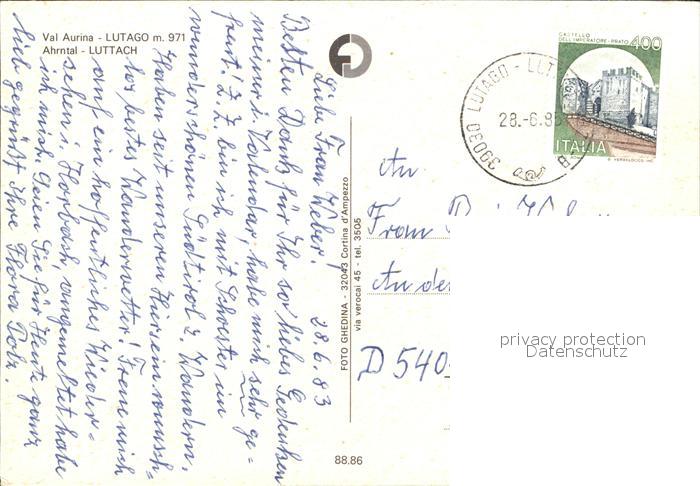 Val Aurina - LUTAGO m. 971
Ahrntal - LUTTACH
Liebe Frau Weber, 28.6.83
Besten Dank für Ihr so liebes Gedenken
meiner i. Kalendar, habe mich sehr ge-
freut! Z.Z. bin ich mit Schwester im
wunderschönen Südtirol z. Wandern.
Haben seit unserem Hiersein wunsch-
bar bestes Wanderwetter! Freue mich
auf ein hoffentliches Wieder-
sehen i. Horbach, angemeldet habe
ich mich. Seien Sie für Heute ganz
lieb gegrüßt Ihre Flora
FOTO GHEDINA - 32043 Cortina d'Ampezzo
via verocai 45 - tel. 3505
88.86
39030 LUTAGO - LUT
28.-6.83
CASTELLO
DELL'IMPERATORE - PRATO
400
ITALIA
An
Frau
An de
D 540
privacy protection
Datenschutz